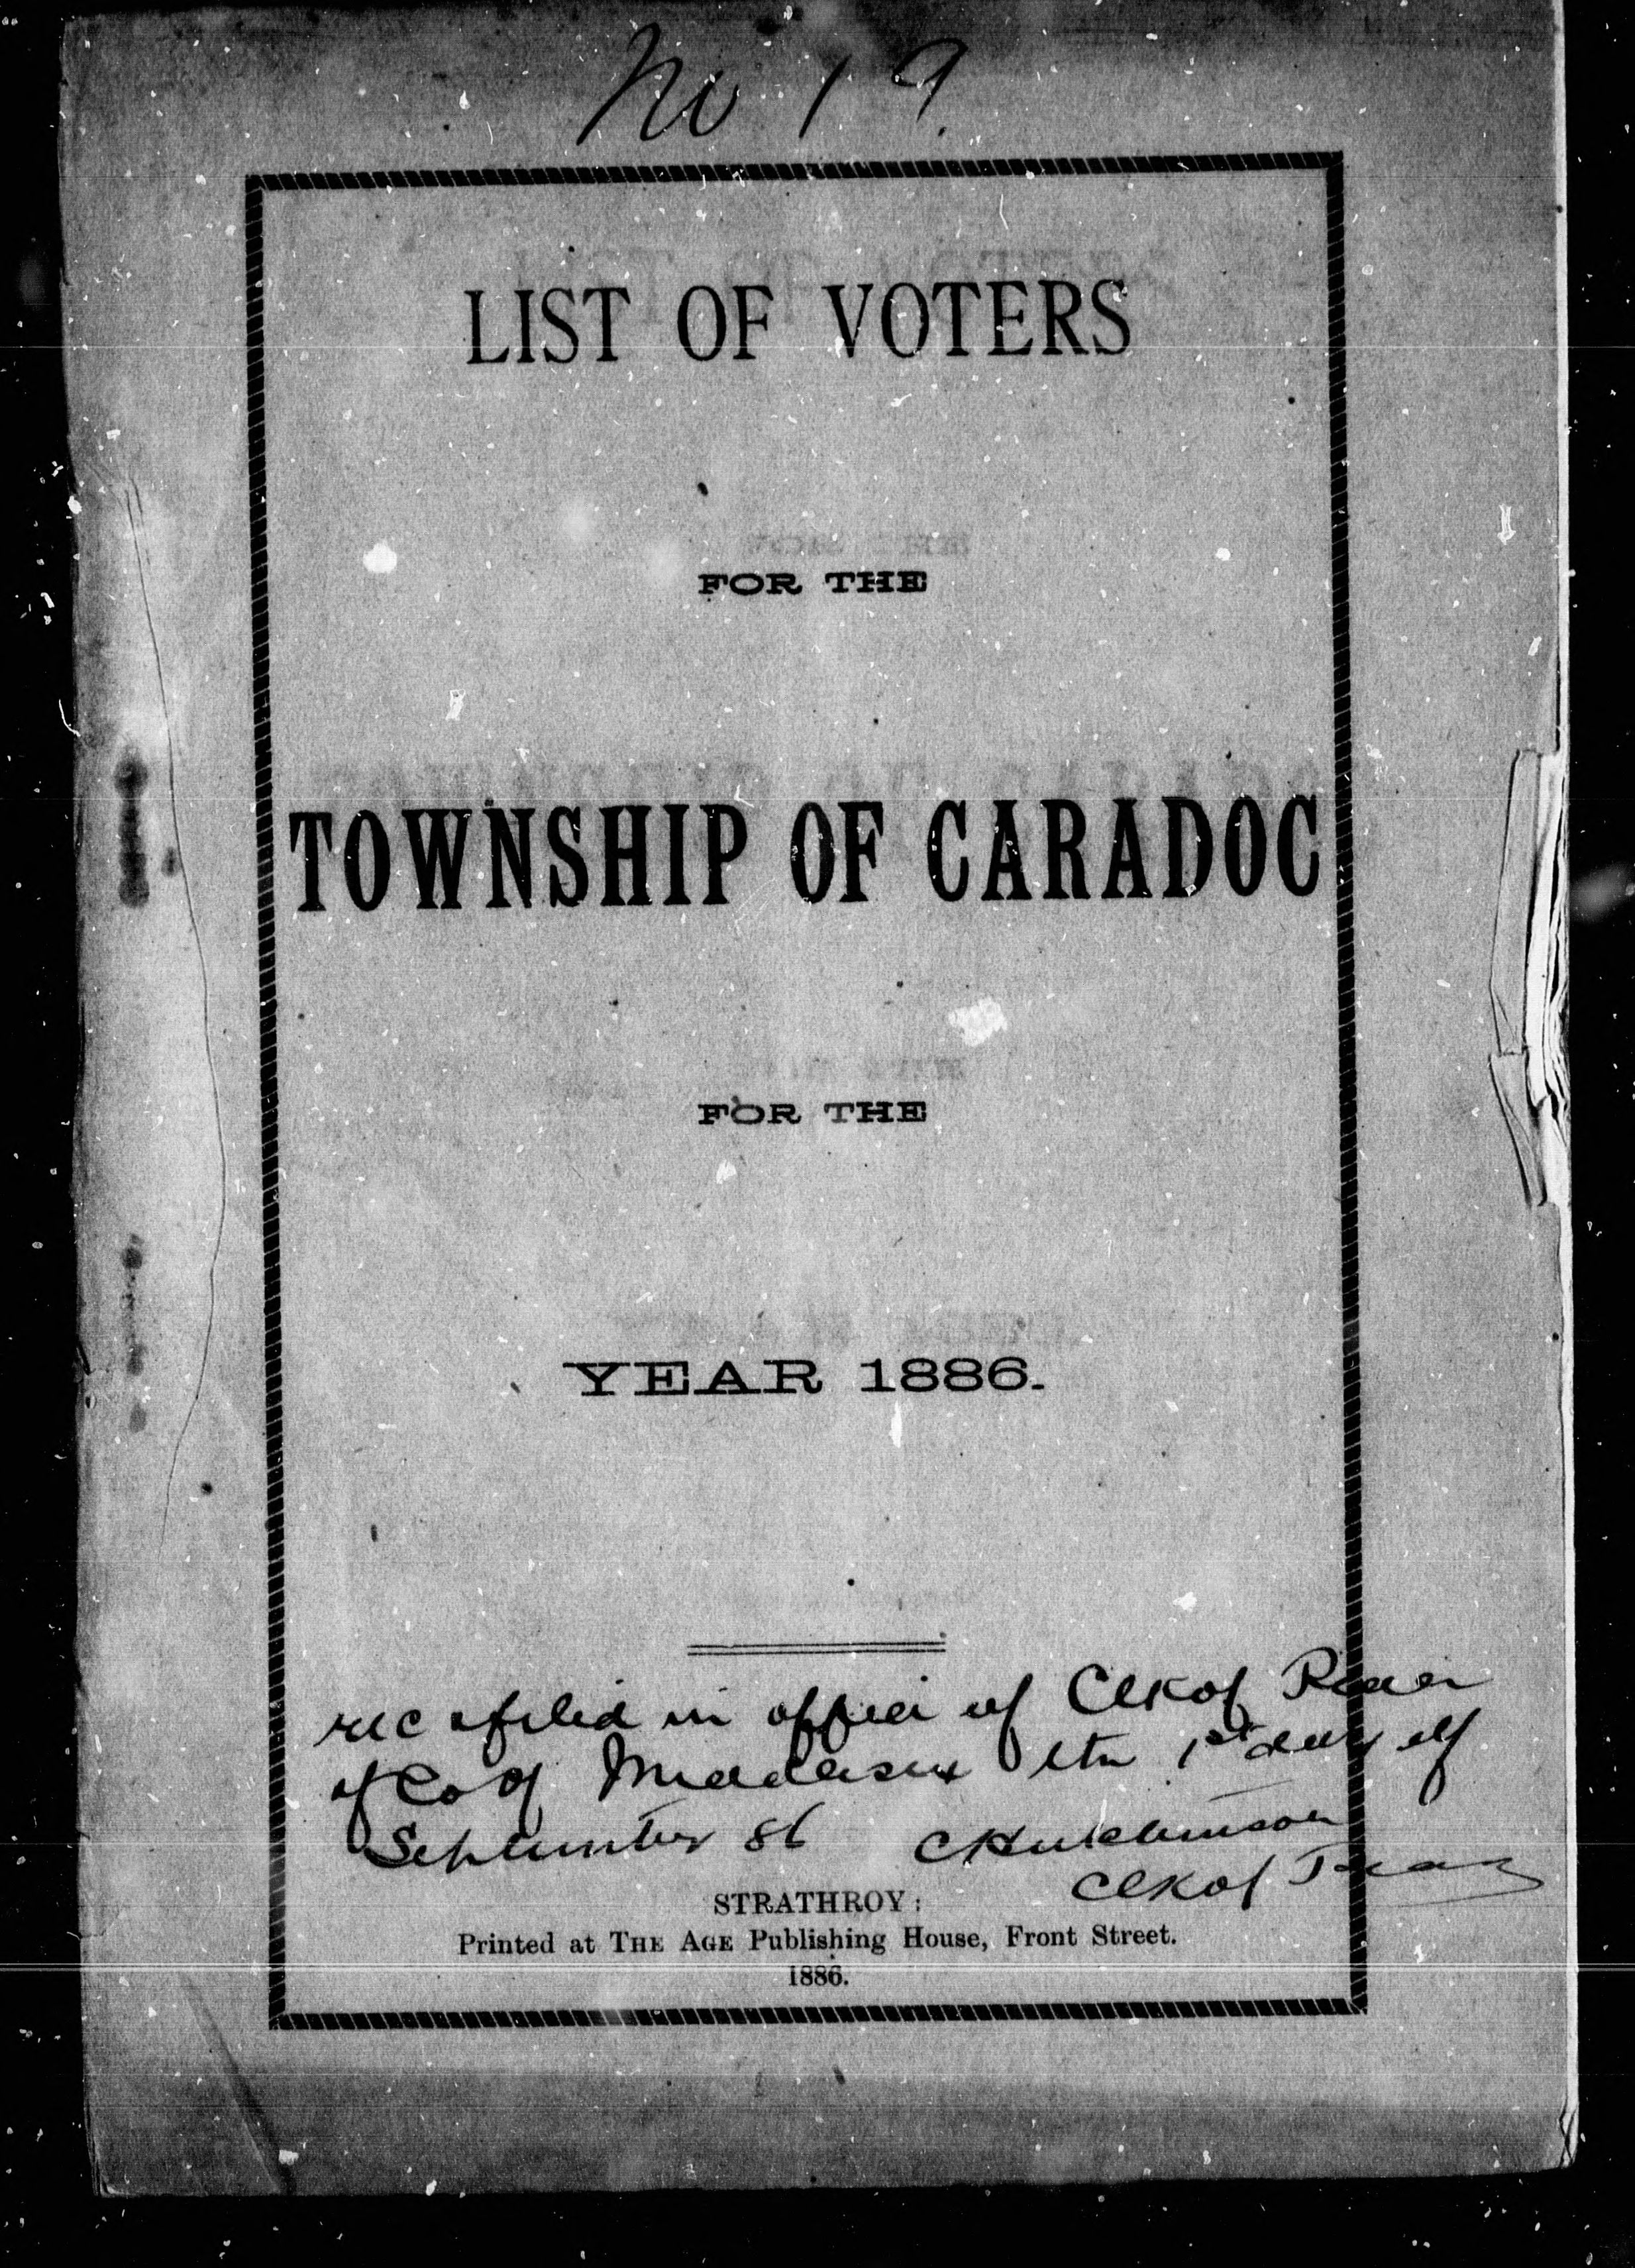 No 19.
LIST OF VOTERS
FOR THE
TOWNSHIP OF CARADOC
FOR THE
YEAR 1886.
rec & filed in office of Clk of Peace
of Co of Middlesex the 1st day of
September 86 C Hutchinson
Clk of Peace
STRATHROY:
Printed at THE AGE Publishing House, Front Street.
1886.